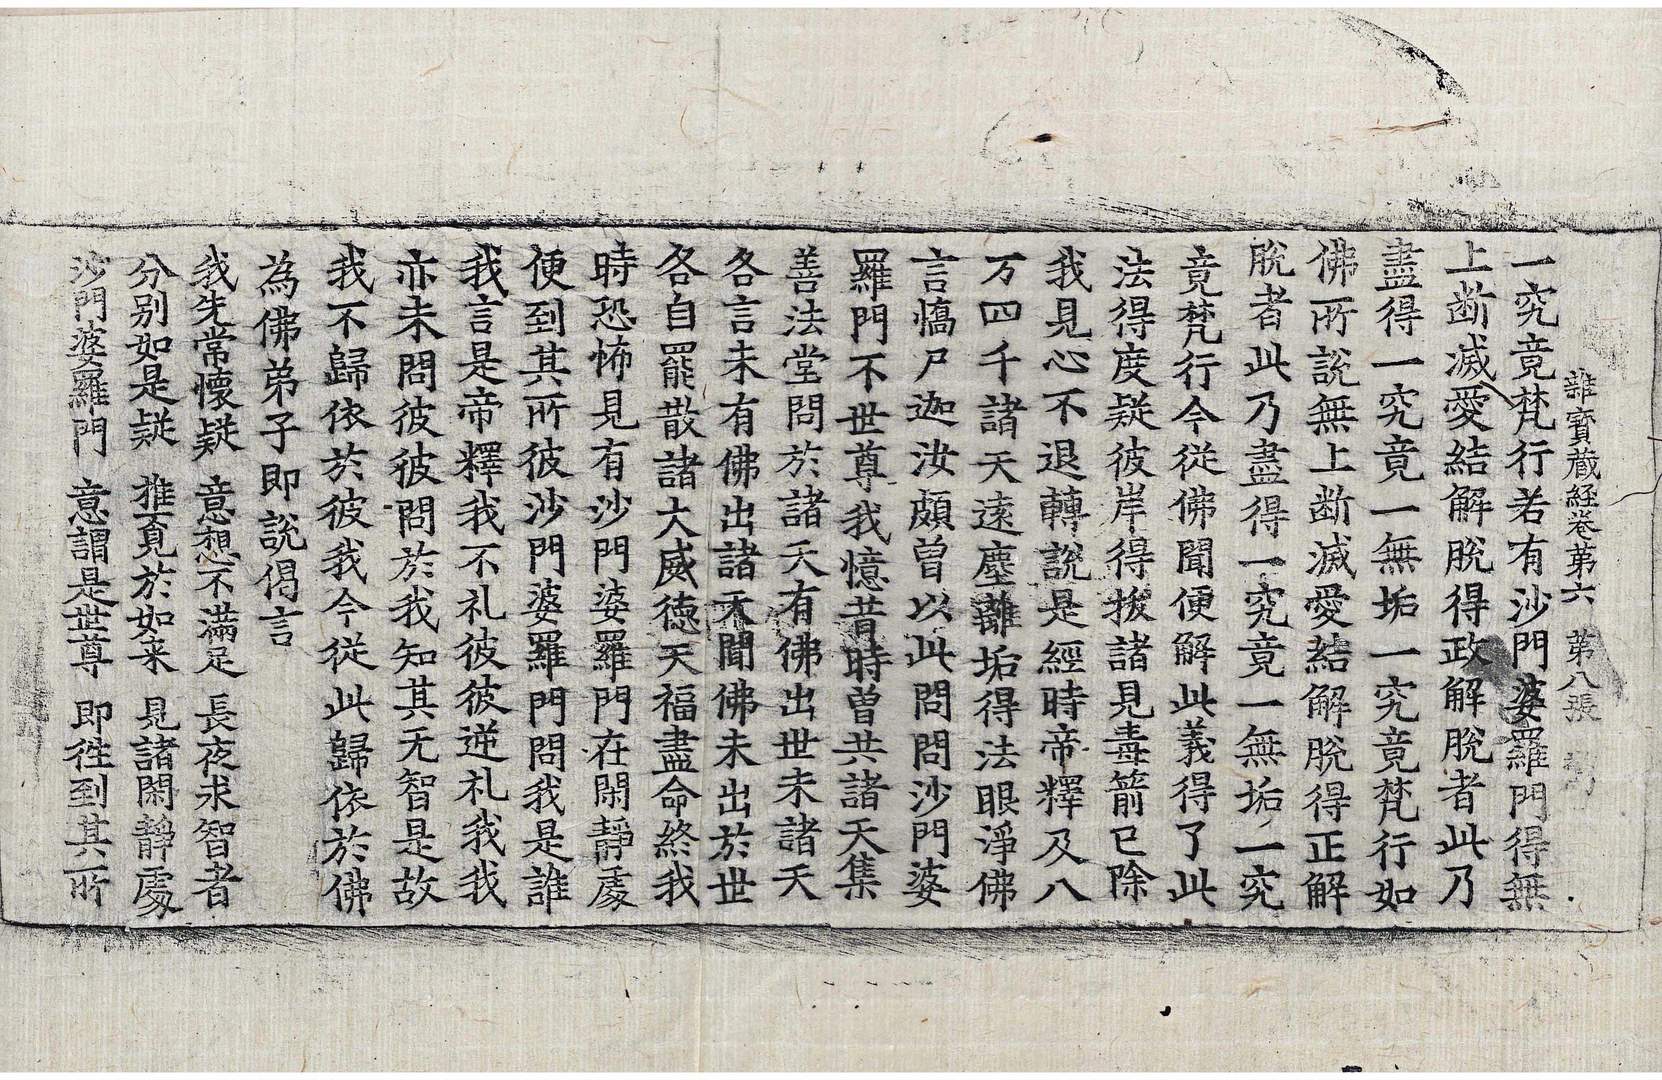 雜寶蔵経卷第六 第八張
一究竟梵行若有沙門婆羅門得無
上断滅愛結解脫得政解脫者此乃
盡得一究竟一無垢一究竟梵行如
佛所說無上断滅愛結解脫得正解
脫者此乃盡得一究竟一無垢一究
竟梵行今從佛聞便解此義得了此
法得度疑彼岸得拔諸見毒箭已除
我見心不退轉說是經時帝釋及八
万四千諸天遠塵離垢得法眼淨佛
言憍尸迦汝頗曽以此問問沙門婆
羅門不世尊我憶昔時曽共諸天集
善法堂問於諸天有佛出世未諸天
各言未有佛出諸天聞佛未出於世
各自罷散諸大威德天福盡命終我
時恐怖見有沙門婆羅門在閑靜處
便到其所彼沙門婆羅門問我是誰
我言是帝釋我不礼彼彼逆礼我我
亦未問彼彼問於我知其无智是故
我不歸依於彼我今從此歸依於佛
為佛弟子即說偈言
我先常懷疑 意想不滿足 長夜求智者
分别如是疑 推覓於如来 見諸閑靜處
沙門婆羅門 意謂是世尊 即徃到其所